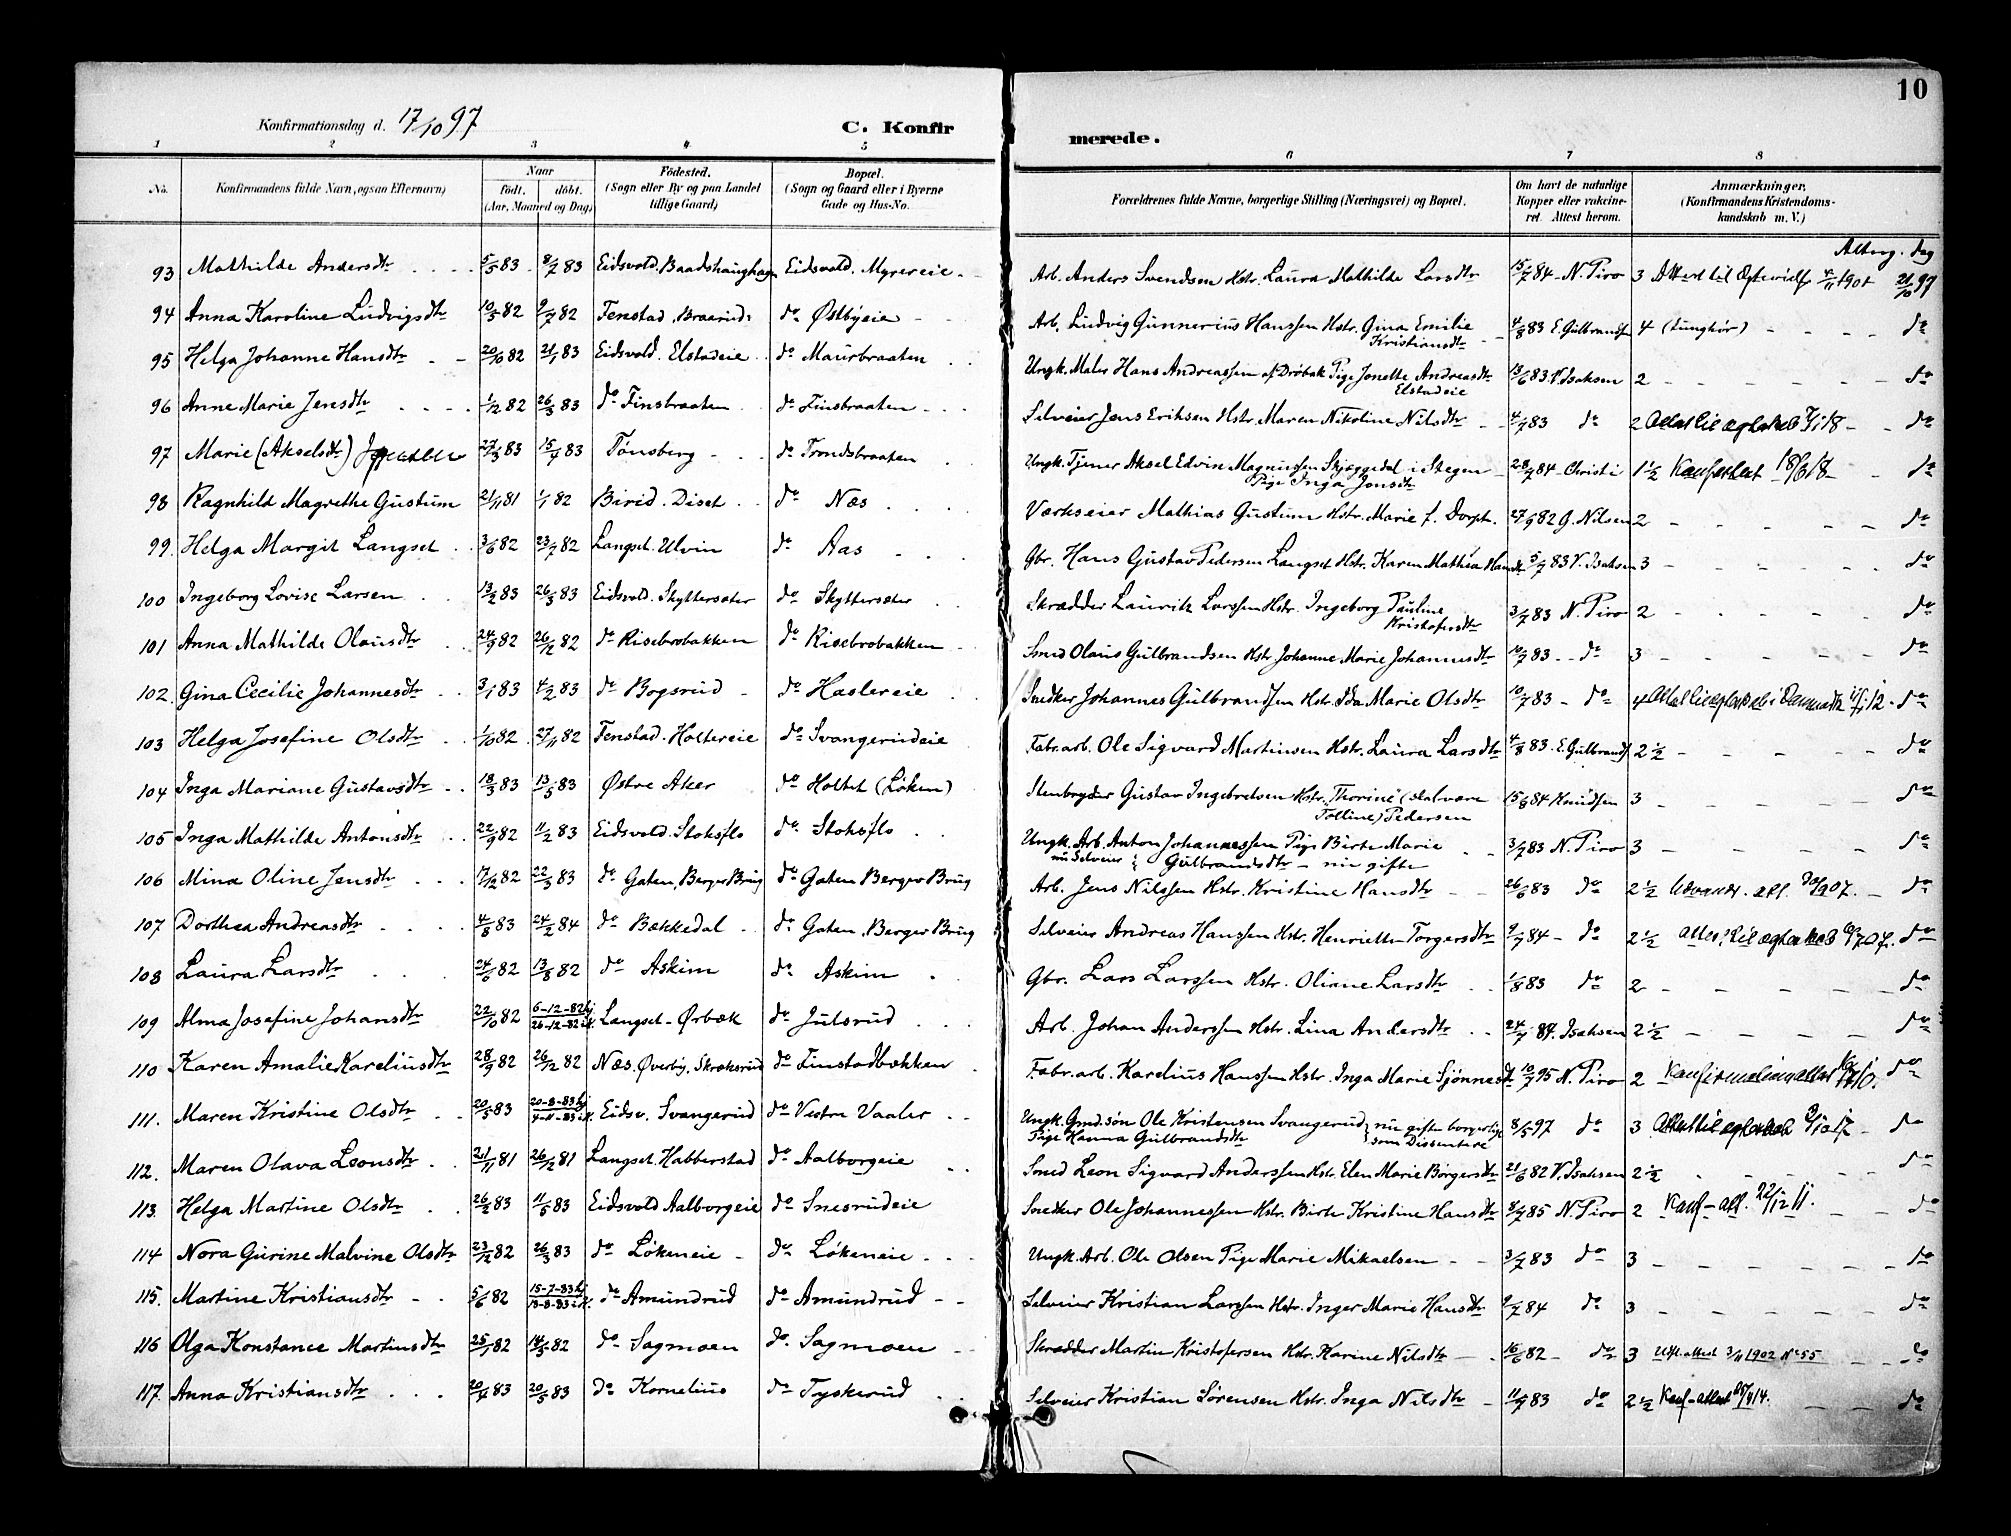 10
Konfirmationsdag d. 17/10 97
C. Konfir
merede.
1 2 3 4 5 6 7 8
No. Konfirmandens fulde Navn, ogsaa Efternavn) Naar Födested. Bopæl.
født. döbt. (Sogn eller By og paa Landet (Sogn og Gaard eller i Byerne
(Aar, Maaned og Dag) tillige Gaard) Gade og Hus-No.
Forældrenes fulde Navne, borgerlige Stilling (Næringsvei) og Bopæl. Om havt de naturlige Kopper eller vakcineret. Attest herom. Anmærkninger, (Konfirmandens Kristendomskundskab m. V.)
Alterg. dag
93 Mathilde Andersdtr 5/5 83 8/7 83 Eidsvold. Eidsvold. Myrereie Arb. Anders Svendsen Hstr. Laura Mathilde Larsdtr 15/7 84 N. Piro 3 Attest til 1901 21/10 97
94 Anna Karoline Ludvigsdtr 10/5 82 9/7 82 Fenstad. do Østbyeie Arb. Ludvig Gunnerius Hanssen Hstr. Gina Emilie Kristiansdtr 4/8 83 E. Gulbrandsen 4 (tunghør) do
95 Helga Johanne Hansdtr 20/10 82 21/1 83 Eidsvold. Elstadeie do Maurbraaten Ungk. Maler Hans Andreassen af Drøbak Pige Jonette Andreasdtr Elstadeie 13/6 83 V. Isaksen 2 do
96 Anne Marie Jensdtr 1/12 82 26/3 83 do Finsbraaten do Finsbraaten Selveier Jens Eriksen Hstr. Maren Nikoline Nilsdtr 4/7 83 do 2 do
97 Marie (Akselsdtr) 27/3 83 15/7 83 Tønsberg do Trondsbraaten Ungk. Tjener Aksel Edvin Magnussen Skjæggedal i Stegen Pige Inga Jonsdtr 28/7 84 Christi 1 1/2 18/6 18 do
98 Ragnhild Magrethe Gustum 21/11 81 1/1 82 Birid. Diset do Næs Værkseier Mathias Gustum Hstr. Marie f. Dorph. 27/9 82 G. Nilsen 2 do
99. Helga Margit Langset 3/6 82 23/7 82 Langset. Ulvin do Aas Gbr. Hans Gustav Pedersen Langset Hstr. Karen Mathea Hansdtr 5/7 83 V. Isaksen 3 do
100 Ingeborg Lovise Larsen 13/2 83 26/3 83 Eidsvold. Skyttersæter do Skyttersæter Skrædder Lauritz Larssen Hstr. Ingeborg Pauline Kristofersdtr 3/7 83 N. Piro 2 do
101 Anna Mathilde Olausdtr 24/9 82 26/12 82 do Risebrobakken do Risebrobakken Smed Olaus Gulbrandsen Hstr. Johanne Marie Johannesdtr 10/7 83 do 3 do
102. Gina Cecilie Johannesdtr 3/1 83 4/2 83 do Bogsrud do Haslereie Snedker Johannes Gulbrandsen Hstr. Ida Marie Olsdtr 10/7 83 do 4 do
103 Helga Josefine Olsdtr 1/10 82 27/11 82 Fenstad. Holtereie do Svangerudeie Fabr. arb. Ole Sigvard Martinsen Hstr. Laura Larsdtr 4/8 83 E. Gulbrands. 2 1/2 do
104 Inga Mariane Gustavsdtr 18/3 83 13/5 83 Østre Aker do Holtet (Løken) Stenbryder Gustav Ingebretsen Hstr. Thorine (skal være Tolline) Pedersen 15/8 84 Knudsen 3 do
105 Inga Mathilde Antonsdtr 22/9 82 11/2 83 Eidsvold. Stoksflo do Stoksflo Ungk. Arb. Anton Johannessen Pige Birte Marie Gulbrandsdtr - nu gifte nu Selveier 3/7 83 N. Piro 3 do
106 Mina Oline Jensdtr 17/12 82 22/3 83 do Gaten, Berger Brug do Gaten Berger Brug Arb. Jens Nilssen Hstr. Kristine Hansdtr 26/6 83 do 2 1/2 Udvandr. att. do
107 Dorthea Andreasdtr 4/8 83 24/2 84 do Bækkedal do Gaten, Berger Brug Selveier Andreas Hanssen Hstr. Henriette Torgersdtr 9/7 84 do 2 1/2 do
108 Laura Larsdtr 24/6 82 13/8 82 do Askim do Askim Gbr. Lars Larssen Hstr. Oliane Larsdtr 1/8 83 do 2 do
109 Alma Josefine Johansdtr 22/10 82 6-12-82 hj 26-12-82 i k. Langset - Ørbæk do Julsrud Arb. Johan Anderssen Hstr. Lina Andersdtr 24/7 84. Isaksen 2 1/2 do
110 Karen Amalie Kareliusdtr 28/9 82 26/12 82 Næs. Øverby, do Finstadbækken Fabr. arb. Karelius Hanssen Hstr. Inga Marie 10/7 95 N. Piro 2 do
111. Maren Kristine Olsdtr 20/5 83 20-8-83 hj 4-11-83 i k. Eidsv. Svangerud do Vestre Vaaler Ungk. Gmd.søn Ole Kristensen Svangerud Pige Hanna Gulbrandsdtr nu gifte borgerlige som Dissentere 8/5 97 do 3 do
112. Maren Olava Leonsdtr 21/11 81 26/12 81 Langset. Habberstad do Aalborgeie Smed Leon Sigvard Anderssen Hstr. Elen Marie Børgersdtr 21/6 82 V. Isaksen 2 1/2 do
113. Helga Martine Olsdtr 26/2 83 11/5 83 Eidsvold Aalborgeie do Snesrudeie Snedker Ole Johannessen Hstr. Birte Kristine Hansdtr 9/7 85 N. Piro 2 Konf-att. 22/12 11. do
114 Nora Gurine Malvine Olsdtr 23/12 82 26/3 83 do Løkeneie do Løkeneie Ungk. Arb. Ole Olsen Pige Marie Mikaelsen 3/7 83 do 3 do
115. Martine Kristiansdtr 5/6 82 15-7-83 hj 19-8-83 i k. do Amundrud do Amundrud Selveier Kristian Larssen Hstr. Inger Marie Hansdtr 9/7 84 do 3 do
116 Olga Konstance Martinsdtr 25/1 82 14/5 82 do Sagmoen do Sagmoen Skrædder Martin Kristofersen Hstr. Karine Nilsdtr 16/6 82 do 3 Utfl. attest 3/11 1902 No 55 do
117. Anna Kristiansdtr 20/4 83 20/5 83 do Kornelius do Tyskerud Selveier Kristian Sørensen Hstr. Inga Nilsdtr 11/7 83 do 2 1/2 Konf-attest do